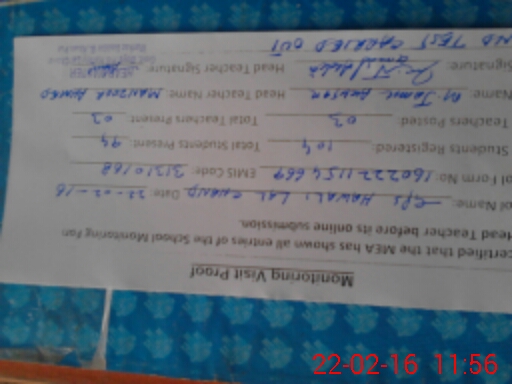 Monitoring Visit Proof
certified that the MEA has shown all entries of the School Monitoring Form
Head Teacher before its online submission.
ol Name: GPS HAWALI LAL CHAND Date: 22-02-16
ol Form No: 1602221154669 EMIS Code: 31310168
Students Registered: 104 Total Students Present: 94
Teachers Posted: 03 Total Teachers Present: 03
Name: M. Jamil Head Teacher Name: MANZOOR AHMED
Signature: Head Teacher Signature:
ND TEST CARRIED OUT
HEADMASTER
22-02-16 11:56